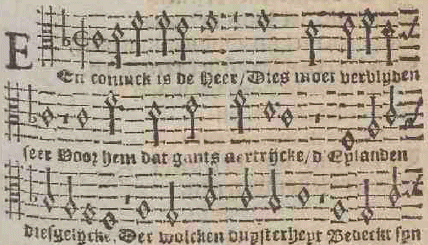 Een coninck is de Heer / Dies moet verblyden
seer Voor hem dat gants aertrijcke / d' Eylanden
diesgelijcke. Der wolcken duysterheyt Bedeckt syn